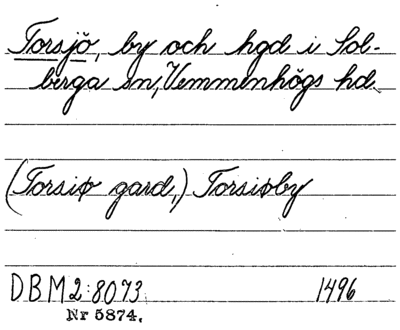 Torsjö, by och hgd i Sol-
berga sn, Vemmenhögs hd.
(Torsiø gard,) Torsiøby
DBM 2:8073 1496
Nr 5874.